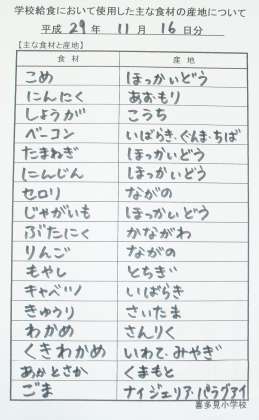 学校給食において使用した主な食材の産地について
平成 29 年 11 月 16 日分
【主な食材と産地】
食材 産地
こめ ほっかいどう
にんにく あおもり
しょうが こうち
ベーコン いばらき・ぐんま・ちば
たまねぎ ほっかいどう
にんじん ほっかいどう
セロリ ながの
じゃがいも ほっかいどう
ぶたにく かながわ
りんご ながの
もやし とちぎ
キャベツ いばらき
きゅうり さいたま
わかめ さんりく
くきわかめ いわて・みやぎ
あかとさか くまもと
ごま ナイジェリア・パラグアイ
喜多見小学校